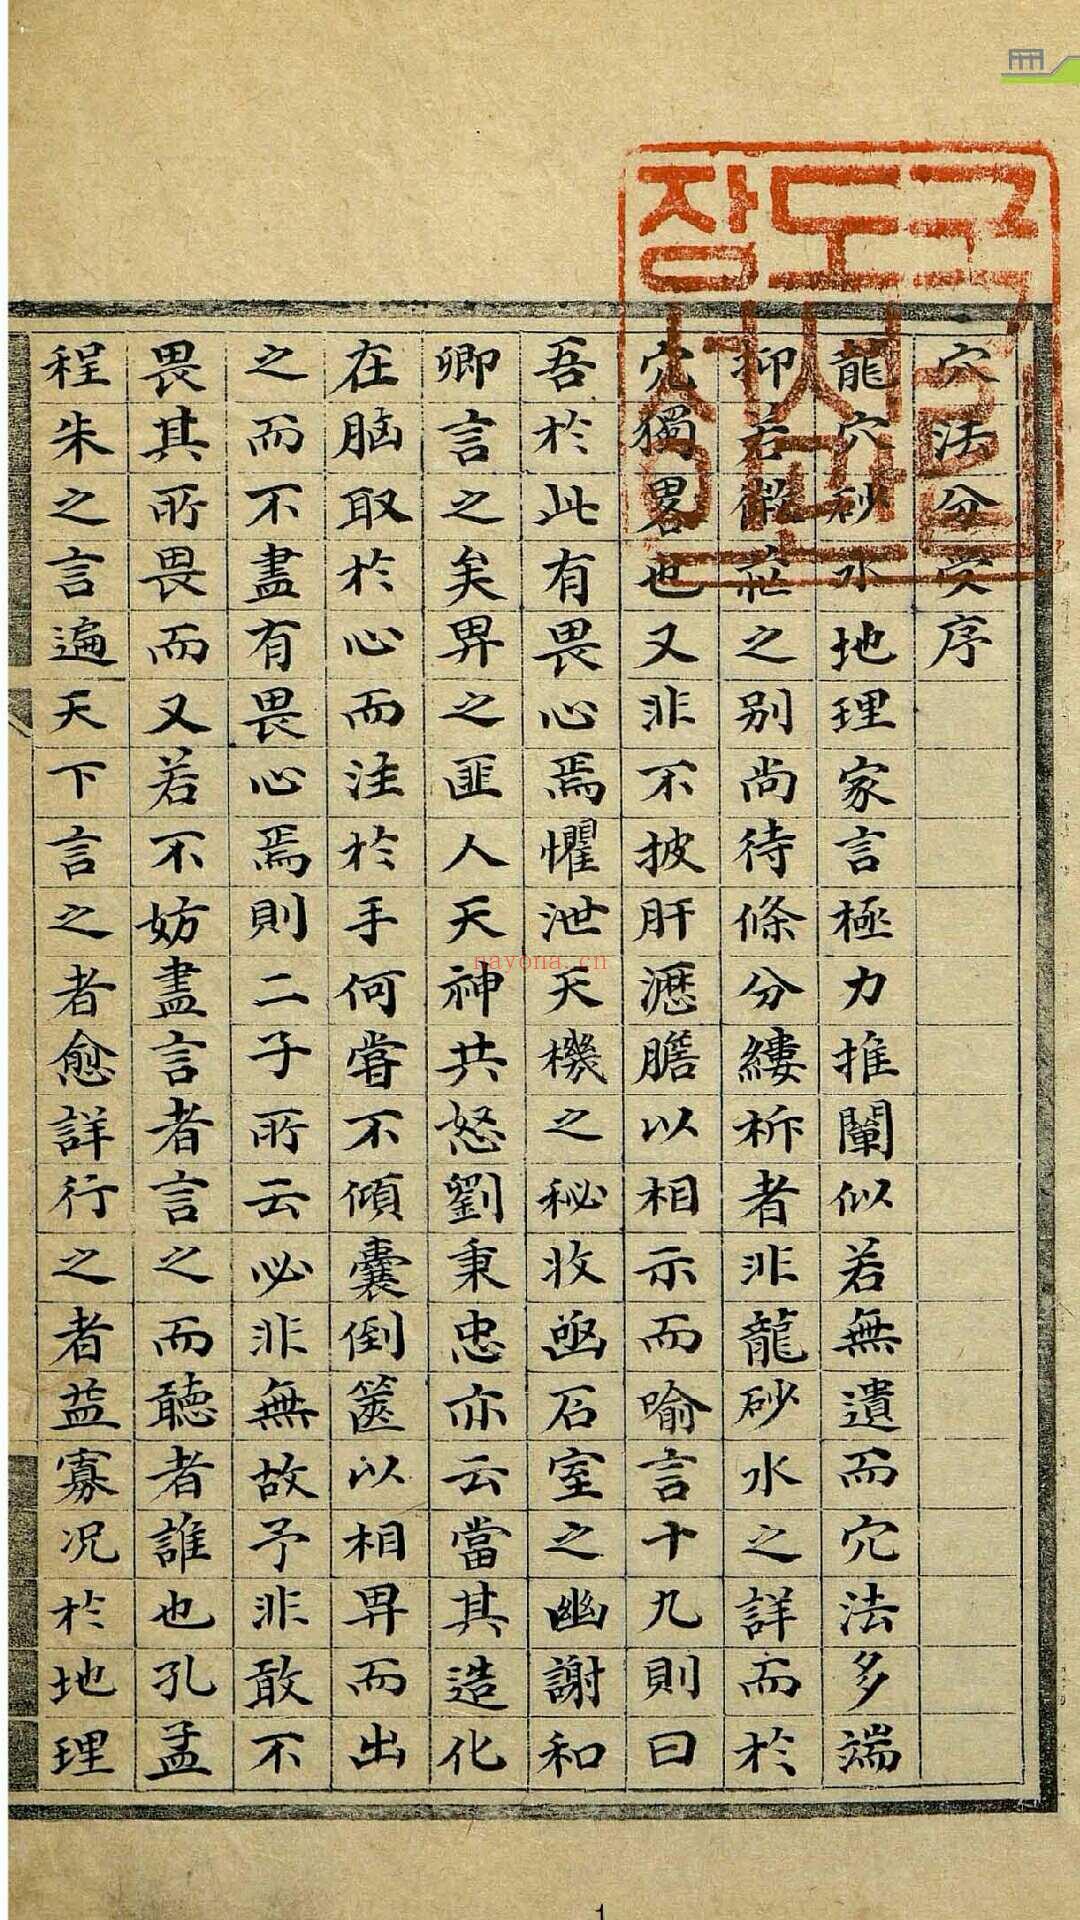 穴法分受序
龍穴砂水地理家言極力推闡似若無遺而穴法多端
抑若微茫之別尚待條分縷析者非龍砂水之詳而於
穴獨畧也又非不披肝瀝膽以相示而喻言十九則曰
吾於此有畏心焉懼泄天機之秘收函石室之幽謝和
卿言之矣畀之匪人天神共怒劉秉忠亦云當其造化
在脑取於心而注於手何嘗不傾囊倒篋以相畀而出
之而不盡有畏心焉則二子所云必非無故予非敢不
畏其所畏而又若不妨盡言者言之而聽者誰也孔孟
程朱之言遍天下言之者愈詳行之者益寡况於地理
국립도서관장서인
nayona.cn
1